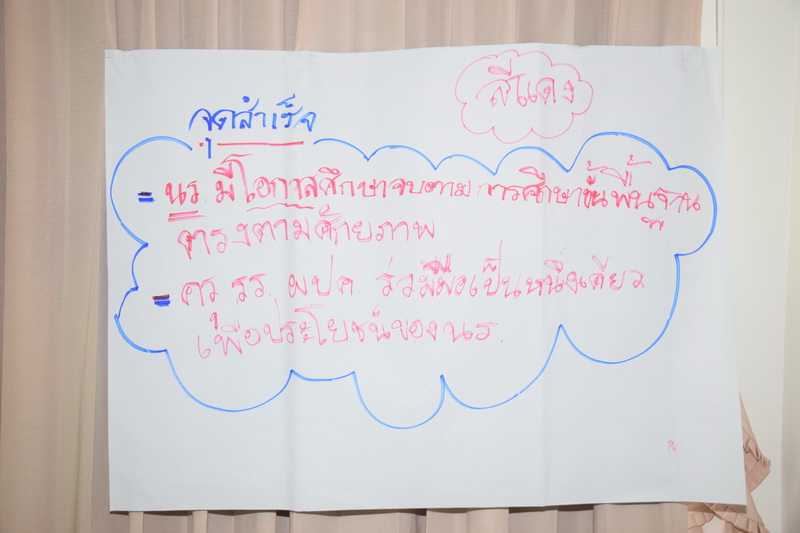 สีแดง
จุดสำเร็จ
= นร. มีโอกาสศึกษาจบตามการศึกษาขั้นพื้นฐาน
ตรงตามศักยภาพ
= ครู รร. ผปค. ร่วมมือเป็นหนึ่งเดียว
เพื่อประโยชน์ของนร.